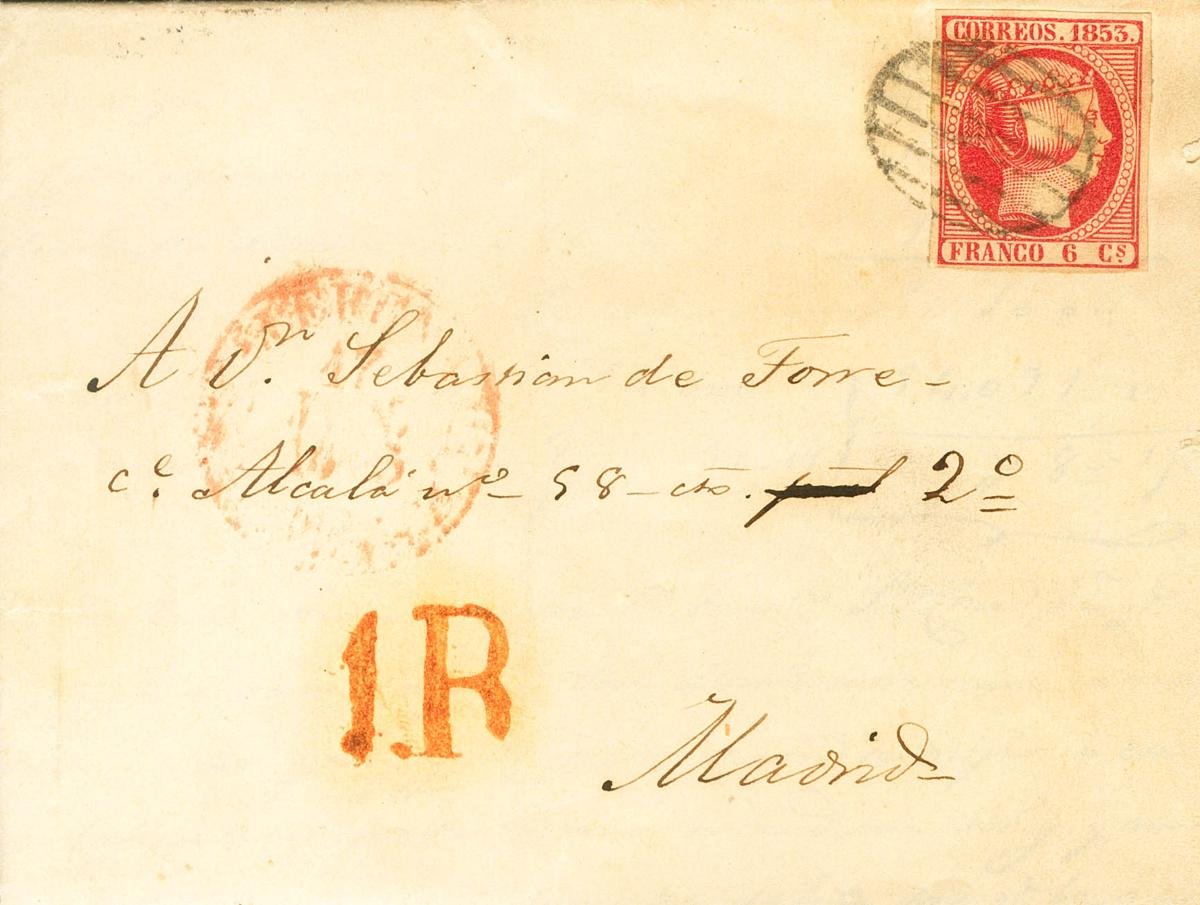 CORREOS. 1853.
FRANCO 6 Cs
A Dn. Sebastian de Torre -
ce. Alcalá nº - 58 - cto. 2º
1.R
Madrid